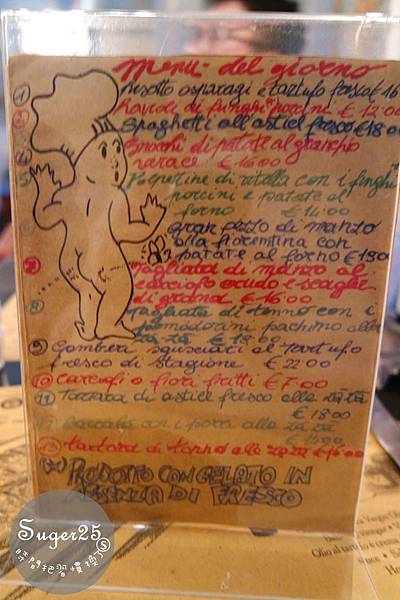 Menu del giorno
risotto asparagi e tartufo fresco € 16
Ravioli di funghi porcini € 12.00
Spaghetti all'astice fresco € 18.00
Gnocchi di patate al granchio
verace € 16.00
Polpettine di vitella con i funghi
porcini e patate al
forno € 14.00
gran pezzo di manzo
alla fiorentina con
patate al forno € 180
7 Tagliata di manzo al
carciofo crudo e scaglie
di grana € 16.00
8 Tagliata di tonno con i
pomodorini pachino alla
za-za € 18.00
9 Gamberi sgusciati al tartufo
fresco di stagione € 22.00
10 Carciofi o fiori fritti € 7.00
11 Tartara di astice fresco alla za za
€ 18.00
12 Baccalà con i porri alla za za
€ 15.00
13 tartara di tonno alla za za € 16.00
(*) PRODOTTO CONGELATO IN
ASSENZA DI FRESCO
Suger25